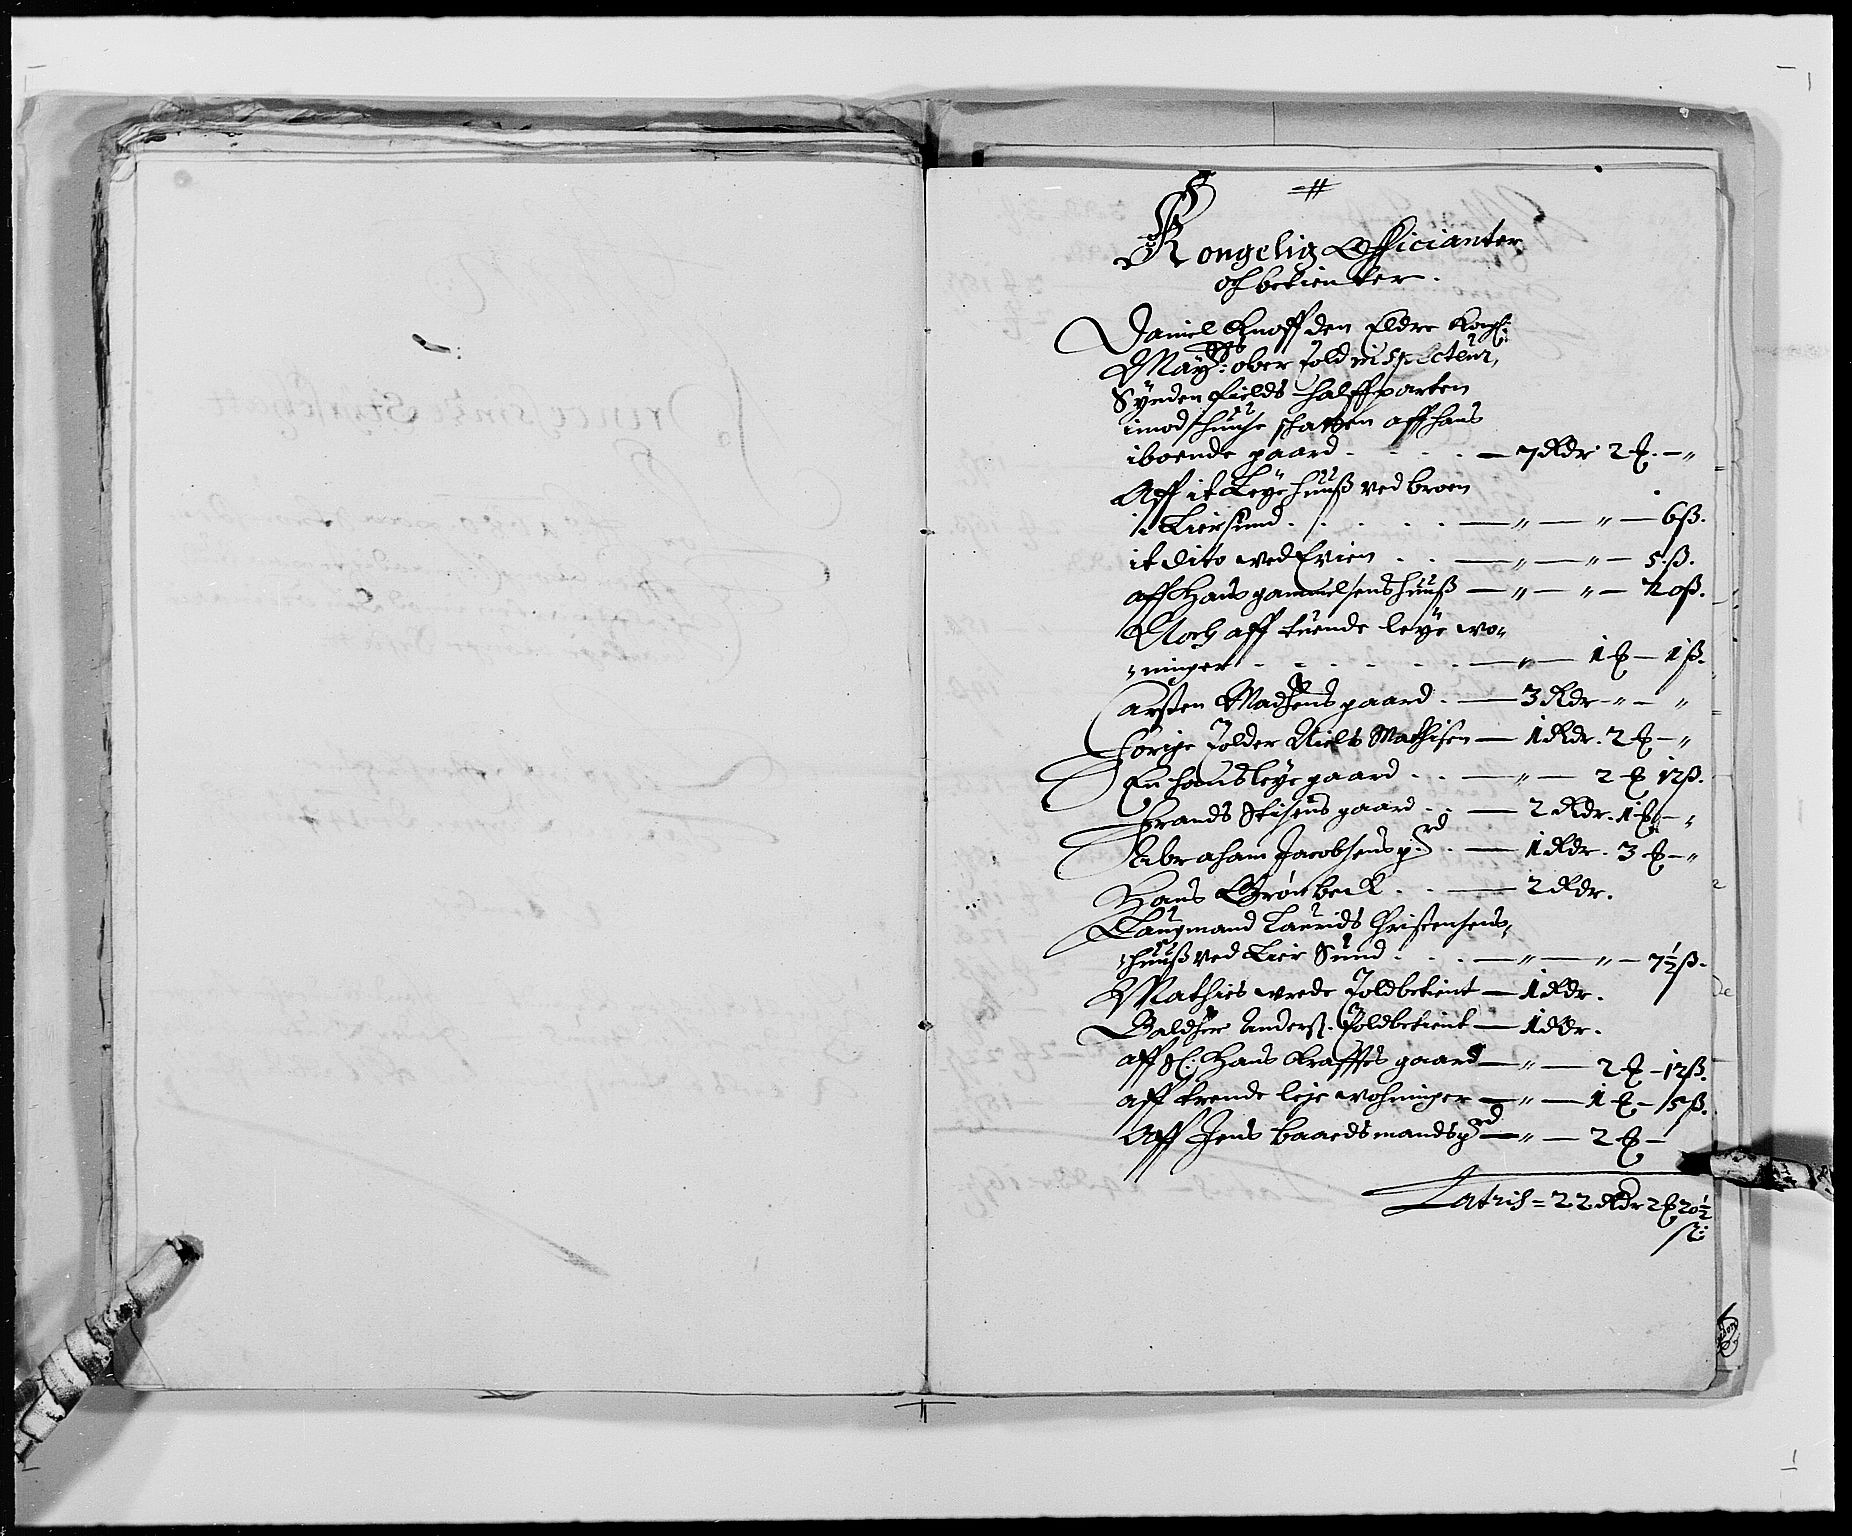 Kongelig Officianter
och betienter.
Daniel Knoff den Eldre Kongl:
Mayts: ober told inspecteur,
Synden fields halffparten
imod huuse schatten aff hans
iboende gaard - - - - 7 Rdr 2 ℔ - "
Aff it Leye huuß ved broen
i Liersund - - - " - " - 6 ß.
it dito ved Evien - - " - " - 5 ß.
aff Hans gammelsens huuß - " - " - 20 ß.
Noch aff tuende leye wo-
ninger - - - - " - 1 ℔ - 1 ß.
Carsten Madsens gaard - 3 Rdr - " - "
Forige tolder Niels Mathisen - 1 Rdr. 2 ℔ - "
En hans leye gaard - - " - 2 ℔ 12 ß.
Frands Stisens gaard - 2 Rdr. 1 ℔ - "
Abraham Jacobsens g:rd - 1 Rdr. 3 ℔ - "
Hans Grönbeck - - 2 Rdr.
Laugmand Laurids Christensens
huuß ved Lier Sund - - " - " - 7½ ß.
Mathies wrede toldbetient - 1 Rdr.
Baldser Anderß. toldbetient - 1 Rdr.
aff Sl. Hans Krafftes gaard - " - 2 ℔ - 12 ß.
aff trende leje wohninger - " - 1 ℔ - 5 ß.
Aff Jens baardsmands grd - " - 2 ℔ -
Lateris = 22 Rdr 2 ℔ 20½
ß: